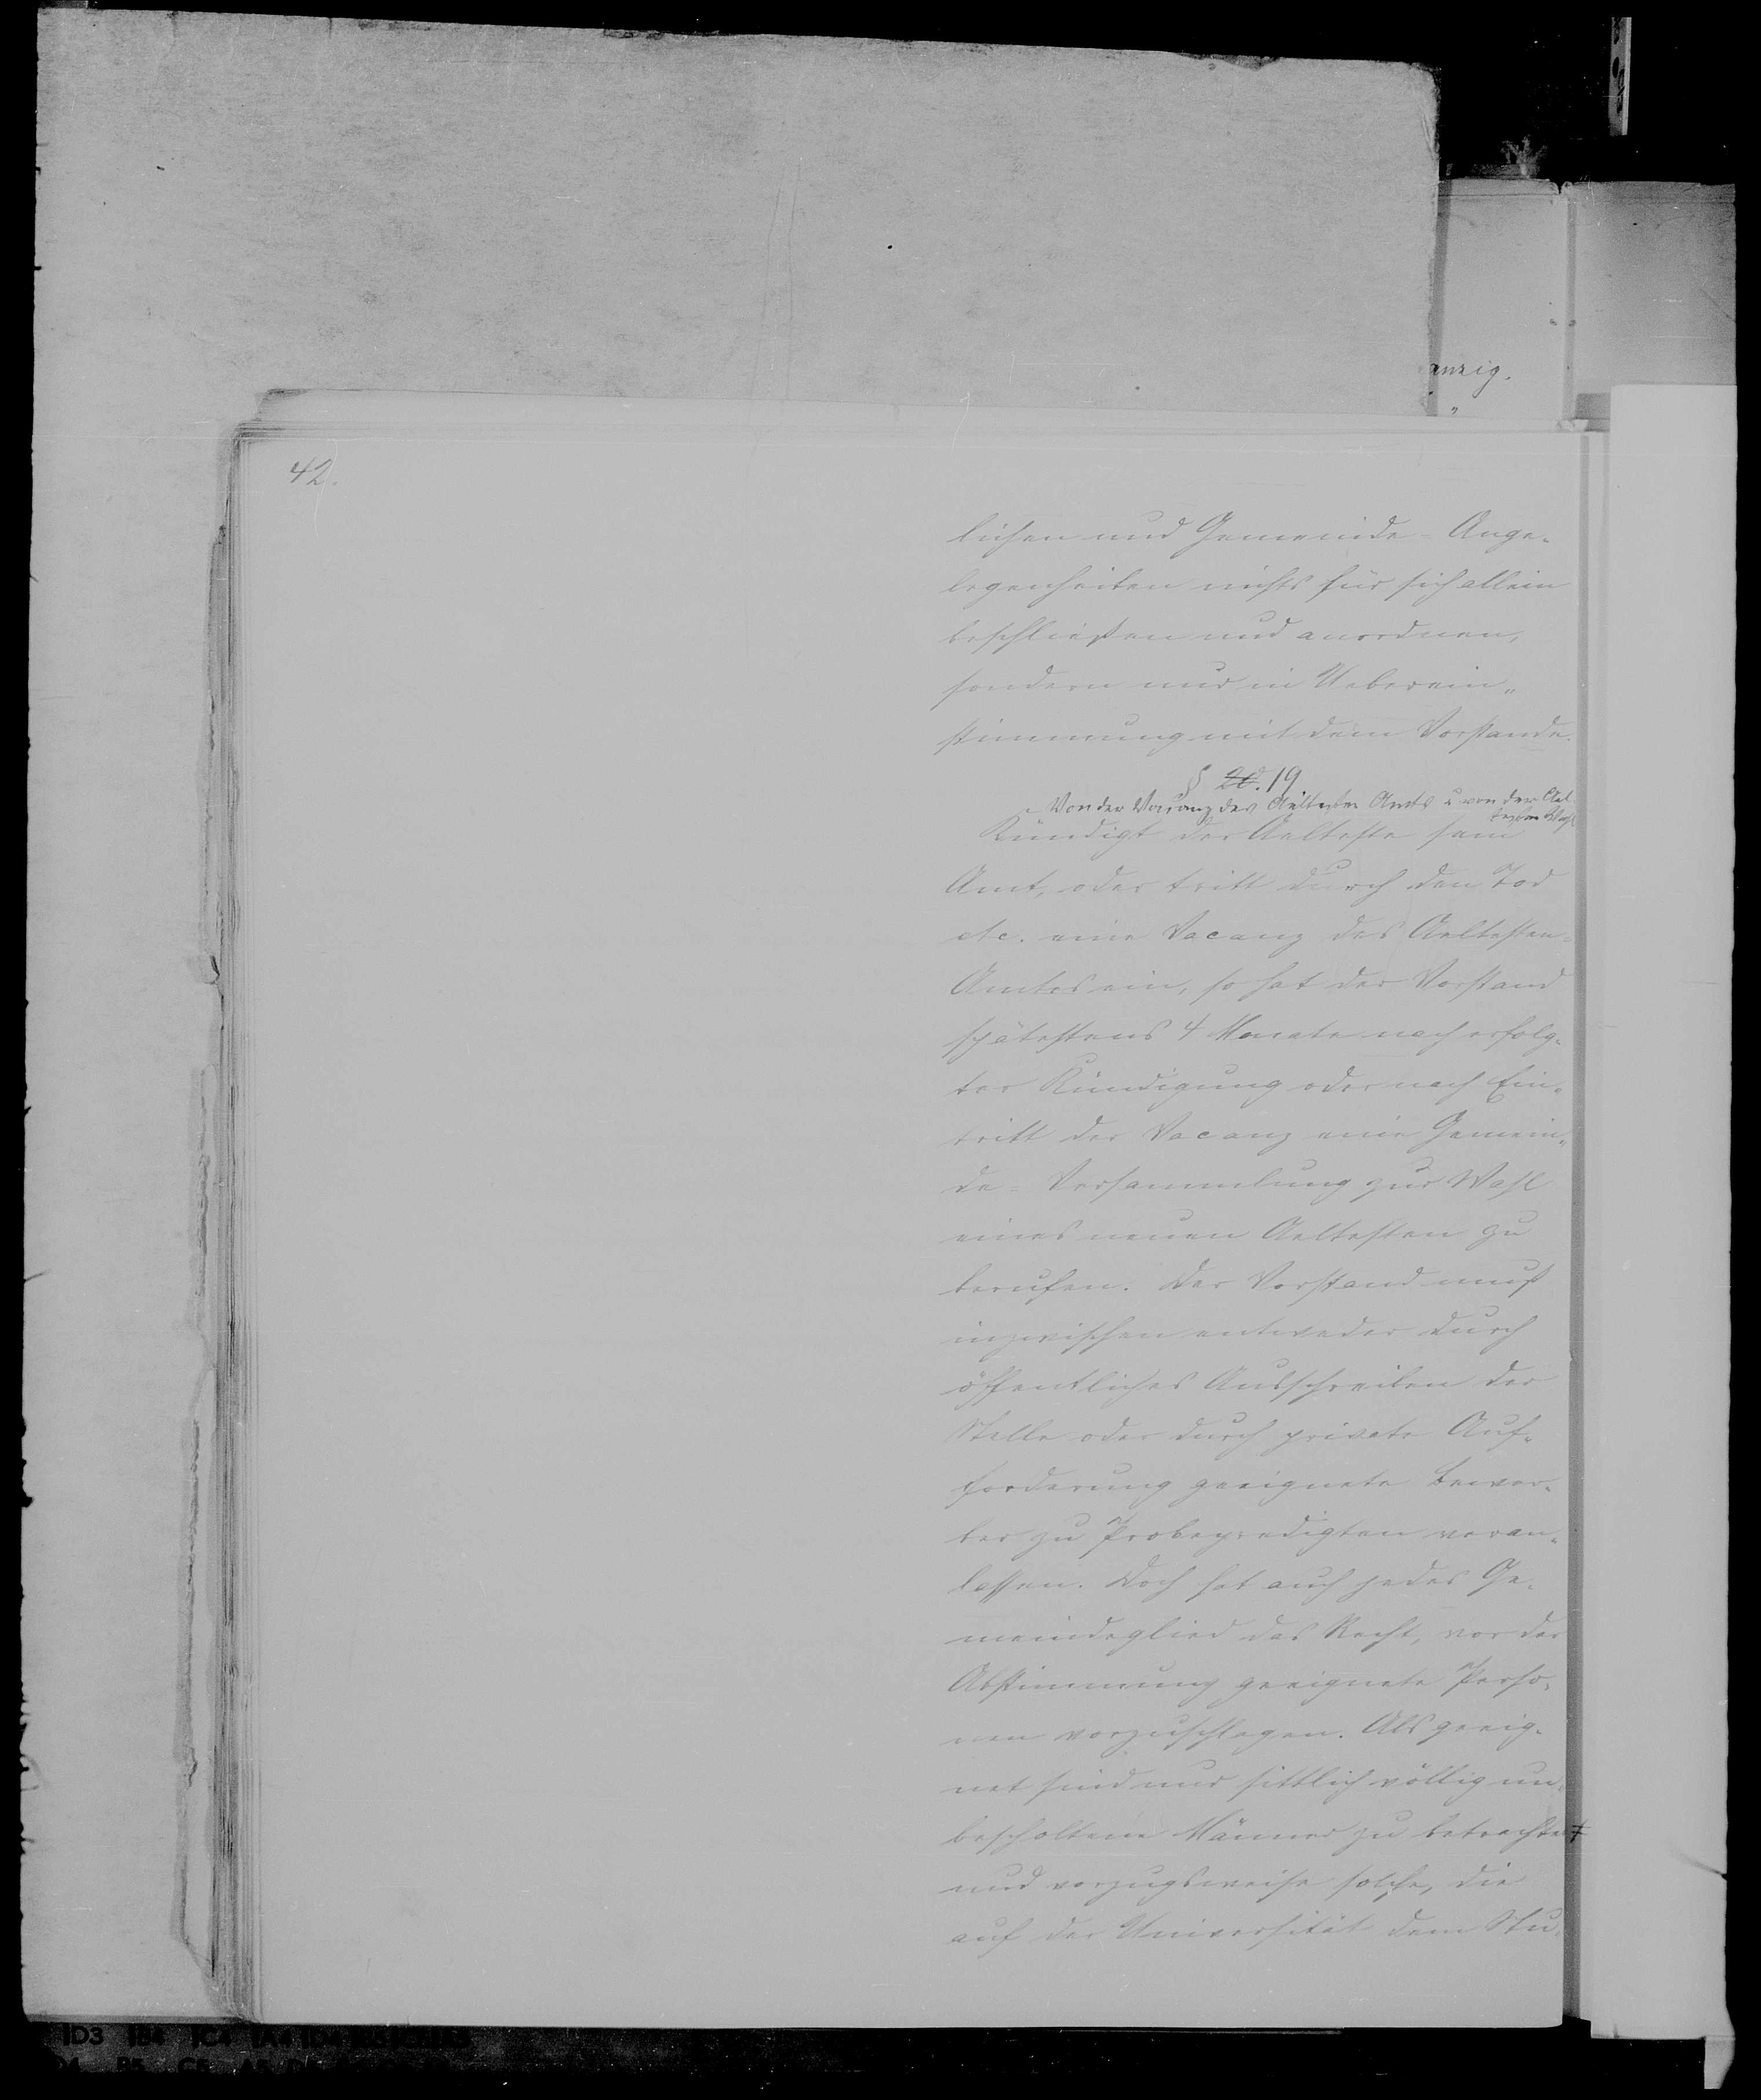 anzig.
"
42.
lichen und Gemeinde-Ange-
legenheiten nichts für sich allein
beschließen und anordnen,
sondern nur in Ueberein-
stimmung mit dem Vorstande.
§ 20. 19
Von der Vacanz des Aeltesten Amts u von der Ael-
testen Wahl
Kündigt der Aelteste sein
Amt, oder tritt durch den Tod
etc. eine Vacanz des Aeltesten-
Amtes ein, so hat der Vorstand
spätestens 4 Monate nach erfolg-
ter Kündigung oder nach Ein-
tritt der Vacanz eine Gemein-
de-Versammlung zur Wahl
eines neuen Aeltesten zu
berufen. Der Vorstand muß
inzwischen entweder durch
öffentliches Ausschreiben der
Stelle oder durch private Auf-
forderung geeignete Bewer-
ber zu Probepredigten veran-
lassen. Doch hat auch jedes Ge-
meindeglied das Recht, vor der
Abstimmung geeignete Perso-
nen vorzuschlagen. Als geeig-
net sind nur sittlich völlig un-
bescholtene Männer zu betrachten
und vorzugsweise solche, die
auf der Universität dem Stu-